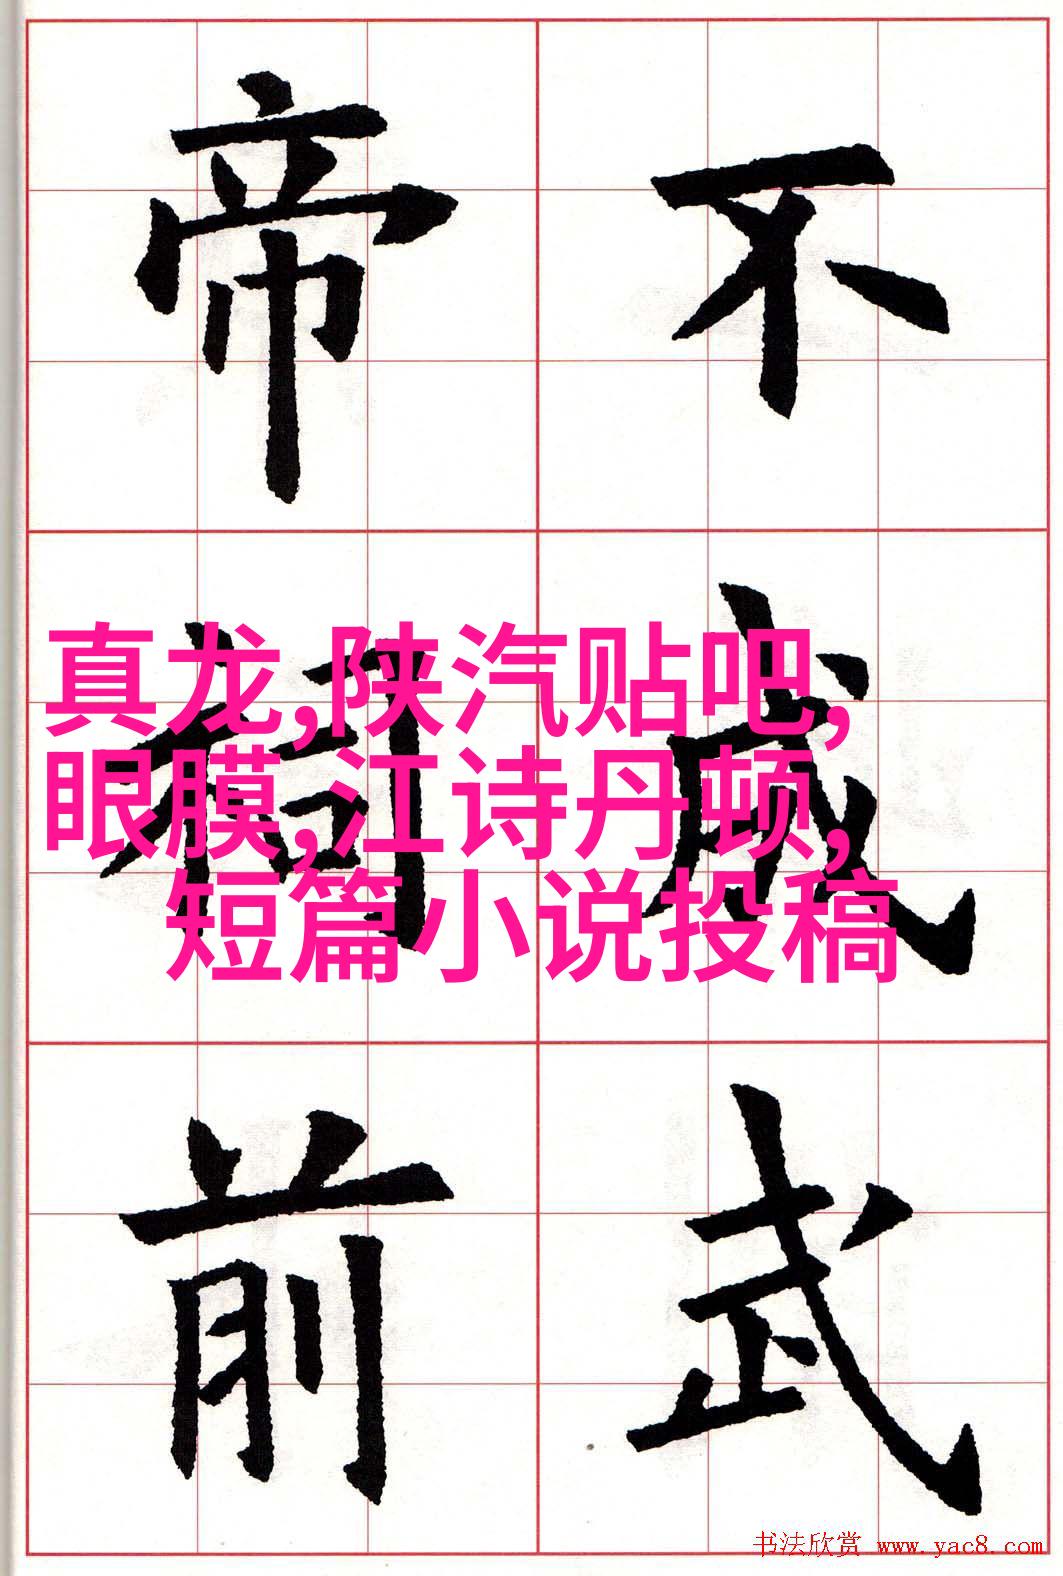 真龙,陕汽贴吧,
眼膜,江诗丹顿,
短篇小说投稿
不武
帝祠前
书法欣赏 www.yac8.com